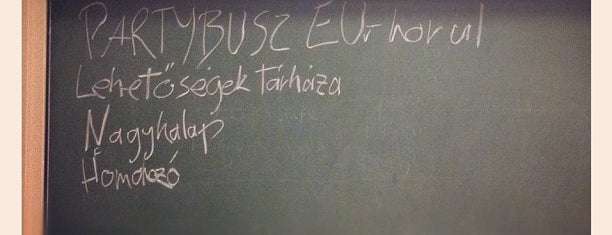 PARTYBUSZ EU-n kívül
Lehetőségek tárháza
Nagykalap
Homokozó